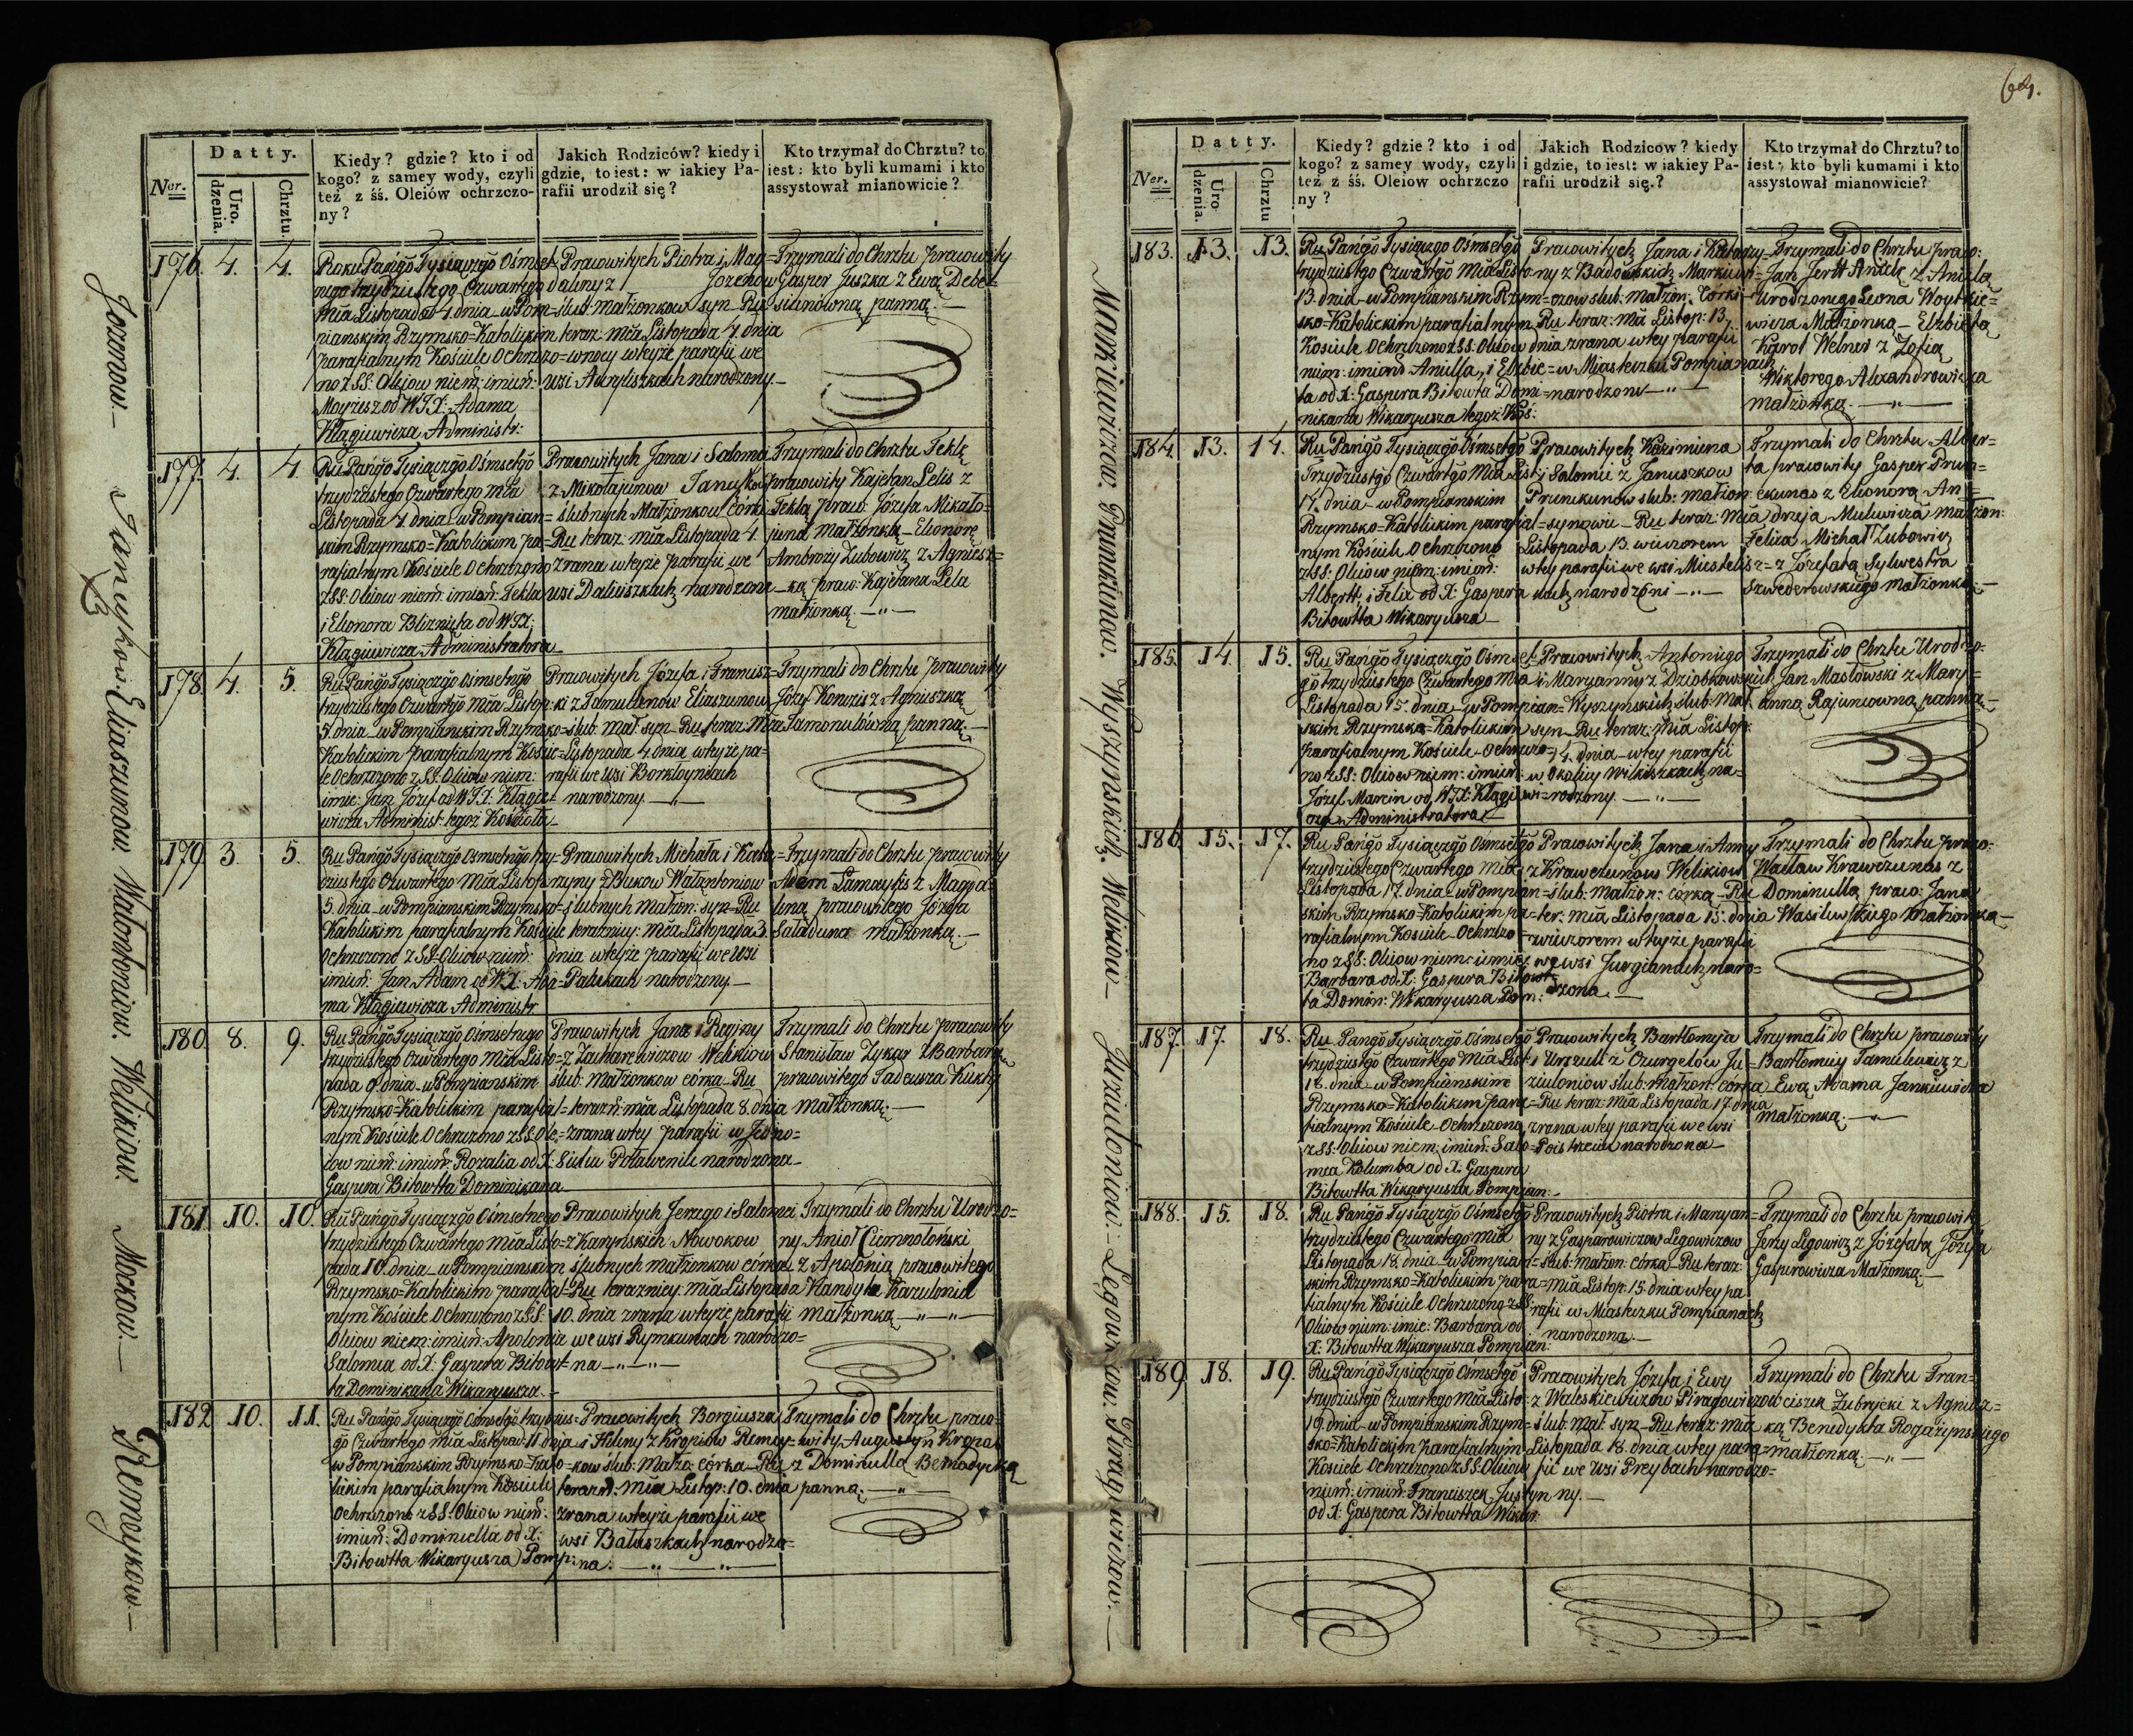 Datty.
Ner.
Uro. dzenia.
Chrztu.
Kiedy? gdzie? kto i od
kogo? z samey wody, czyli
też z śś. Oleiów ochrzczo-
ny?
Jakich Rodziców? kiedy i
gdzie, to iest: w iakiey Pa-
rafii urodził się?
Kto trzymał do Chrztu? to
iest: kto byli kumami i kto
assystował mianowicie?
Jozenow
176. 4. 4.
Roku Pańgo Tysiącżgo Ośmset
nego trzydziestego Czwartego
Mia Listopada 4 dnia w Pom=
pianskim Rzymsko=Katolickim
parafialnym Kościele Ochrzczo=
no z SS: Oleiow niem: imien:
Moyżesz od WJX: Adama
Kłągiewicza Administr:
Pracowitych Piotra i Mag=
daleny z Jozenow
ślub: małżonkow syn Ru
teraz: mia Listopada 4. dnia
wnocy wteyże parafii we
wsi narodzony
Trzymali do Chrztu pracowity
Gasper Juszka z Ewą Debe=
panną.
Janczykow
177. 4. 4.
Ru Pańgo Tysiącżgo Ośmsetgo
trzydziestego Czwartego mia
Listopada 4 dnia w Pompian=
skim Rzymsko=Katolickim pa=
rafialnym Kościele Ochrzczono
z SS: Oleiow niem: imion: Tekla
i Elionora Bliznięta od WJX:
Kłągiewicza Administratora
Pracowitych Jana i Salomei
z Mikołajunow
ślubnych Małżonkow Córki
Ru teraz: mia Listopada 4.
zrana wteyże parafii we
wsi Daliuszkach narodzone
Trzymali do Chrztu Teklę
pracowity Kajetan Lelis z
Teklą praw: Józefa Mikało=
juna Małżonką Elionorę
Ambroży Zubowicz z Agniesz=
ką praw: Kajetana Lela
małżonką.
Eliaszunow.
178. 4. 5.
Ru Pańgo Tysiącżgo ośmsetnego
trzydziestego Czwartgo mia Listop:
5. dnia w Pompianskim Rzymsko=
Katolickim parafialnym Koście=
le Ochrzczono z SS: Oleiow niem:
imie: Jan Józef od WJX: Kłągie=
wicza Administ: tegoż Kościoła
Pracowitych Józefa i Francisz=
ki z Samulenow Eliaszunow
ślub: mał: syn Ru teraz: Mia
Listopada 4 dnia wteyże pa=
rafii we wsi
narodzony.
Trzymali do Chrztu pracowity
Józef z Agnieszką
panną.
Walantoniow.
179. 3. 5.
Ru Pańgo Tysiącżgo Ośmsetngo trzy=
dziestego Czwartego Mia Listop:
5. dnia w Pompianskim Rzymsko=
Katolikim parafialnym Kościele
Ochrzczono z SS: Oliow niem:
imien: Jan Adam od WX: Ada=
ma Kłągiewicza Administr
Pracowitych Michała i Kata=
rzyny z Bukow Walantoniow
ślubnych małżon: syn Ru
terazniey: mia Listopada 3.
dnia wteyże parafii we wsi
narodzony
Trzymali do Chrztu pracowity
Adam z Magda=
leną pracowitego Józefa
małżonką.
Welikiow.
180. 8. 9.
Ru Pańgo Tysiącżgo Ośmsetnego
trzydziestego Czwartego Mia Listo=
pada 9 dnia w Pompianskim
Rzymsko=Katolickim parafial=
nym Kościele Ochrzczono z SS: Ole=
iow niem: imien: Rozalia od X:
Gaspera Bitowtta Dominikana
Pracowitych Jana i Reginy
z Zacharewiczow Welikiow
ślub: Małżonkow córka Ru
terazn: mia Listopada 8. dnia
zrana wtey parafii w Jedno=
siele narodzona
Trzymali do Chrztu pracowity
Stanisław z Barbarą
pracowitego Tadeusza
Małżonką.
181. 10. 10.
Ru Pańgo Tysiącżgo Ośmsetnego
trzydziestego Czwartego Mia Listo=
pada 10. dnia w Pompianskim
Rzymsko=Katolickim parafial=
nym Kościele Ochrzczono z SS:
Oleiow niem: imien: Apolonia
Salomea od X: Gaspera Bitowt=
ta Dominikana Wikaryusza.
Pracowitych Jerzego i Salomei
z
ślubnych małżonkow córka
Ru terazniey: mia Listopada
10. dnia zrana wteyże parafii
we wsi narodzo=
na
Trzymali do Chrztu Urodzo=
ny Anioł
z Apolonią pracowitego
małżonką
Remeykow.
182. 10. 11.
Ru Pańgo Tysiącżgo Ośmsetgo trzydzies=
go Czwartego mia Listopad: 11 dnia
w Pompianskim Rzymsko=Kato=
lickim parafialnym Kościele
Ochrzczono z SS: Oliow niem:
imien: Dominicella od X:
Bitowtta Wikaryusza Pomp:
Pracowitych Borgiusza
i Heleny z Kropiow Remey=
kow ślub: Małżo: córka Ru
terazn: Mia Listop: 10. dnia
zrana wteyże parafii we
wsi Bałuszkach narodzo=
na.
Trzymali do Chrztu praco=
wity Augustyn
z Dominellą
panną.
64.
Datty.
Ner.
Uro dzenia.
Chrztu
Kiedy? gdzie? kto i od
kogo? z samey wody, czyli
też z śś. Oleiow ochrzczo
ny?
Jakich Rodzicow? kiedy
i gdzie, to iest: w iakiey Pa-
rafii urodził się.?
Kto trzymał do Chrztu? to
iest; kto byli kumami i kto
assystował mianowicie?
Markiewiczow.
183. 13. 13.
Ru Pańgo Tysiącżgo Ośmsetgo
trzydziestgo Czwartgo Mia Listo:
13. dnia w Pompianskim Rzym=
sko=Katolickim parafialnym
Kościele Ochrzczono z SS: Oliow
niem: imiona Aniella, i Elżbie=
ta od X: Gaspera Bitowta Domi=
nikana Wikaryusza tegoż Koś:
Pracowitych Jana i Katarzy=
ny z Markiewi=
czow ślub: Małżon: Córki
Ru teraz: Mia Listop: 13.
dnia zrana wtey parafii
w Miasteczku Pompianach
narodzone
Trzymali do Chrztu praco:
Jan z Anielą
Urodzonego Leona Woytkie=
wicza Małżonką Elżbietą
Karol Welner z Zofią
Wiktorego Alexandrowicza
małżonką.
Prunckunow.
184. 13. 14.
Ru Pańgo Tysiącżgo Ośmsetgo
Trzydziestgo Czwartgo Mia List:
14. dnia w Pompianskim
Rzymsko=Katolickim parafial=
nym Kościele Ochrzczono
z SS: Oliow niem: imion:
Albertt, i Felix od X: Gaspera
Bitowtta Wikaryusza
Pracowitych Kazimierza
i Salomei z Januszkow
Prunckunow ślub: małżon:
synowie Ru teraz: Mia
Listopada 13. wieczorem
wtey parafii we wsi
narodzeni
Trzymali do Chrztu Alber=
ta pracowity Gasper Prun=
ckunas z Elionorą An=
drzeja małżon:
Felixa Michał Zubowicz
z Józefatą Sylwestra
Szwederowskiego małżonką.
Wyszynskich.
185. 14. 15.
Ru Pańgo Tysiącżgo Ośmset=
go trzydziestego Czwartego Mia
Listopada 15. dnia w Pompian=
skim Rzymsko=Katolickim
parafialnym Kościele Ochrzczo=
no z SS: Oliow niem: imien:
Józef Marcin od WJX: Kłągiewi=
cza Administratora
Pracowitych Antoniego
i Maryanny z Dziobkowskich
Wyszynskich ślub: Mał:
syn Ru teraz: Mia Listop:
14. dnia wtey parafii
w Okolicy Wilkiszkach na=
rodzony.
Trzymali do Chrztu Urodzo:
Jan Masłowski z Mary=
anną Rajuniowną panną.
Welikiow
186. 15. 17.
Ru Pańgo Tysiącżgo Ośmsetgo
trzydziestego Czwartego Mia
Listopada 17. dnia w Pompian=
skim Rzymsko=Katolickim pa=
rafialnym Kościele Ochrzczo=
no z SS: Oliow niem: imie:
Barbara od X: Gaspera Bitowt=
ta Domin: Wikaryusza Pom:
Pracowitych Jana i Anny
z Krawczunow Welikiow
ślub: Małżon: córka Ru
ter: mia Listopada 15. dnia
wieczorem wteyże parafii
we wsi Jurgianach naro=
dzona
Trzymali do Chrztu praco:
Wacław Krawczunas z
Dominellą praco: Jana
Wasilewskiego Małżonką
Jurziuloniow
187. 17. 18.
Ru Pańgo Tysiącżgo Ośmsetgo
trzydziestgo Czwartego Mia List:
18. dnia w Pompianskim
Rzymsko=Katolickim para=
fialnym Kościele Ochrzczono
z SS: Oliow niem: imien: Salo=
mea Kolumba od X: Gaspera
Bitowtta Wikaryusza Pompian:
Pracowitych Bartłomyja
i Urszuli z Czurgelow Ju=
rziuloniow ślub: małżon: córka
Ru teraz: Mia Listopada 17 dnia
zrana wtey parafii we wsi
narodzona
Trzymali do Chrztu pracowity
Bartłomiey Samulewicz z
Ewą Adama Jankiewicza
małżonką.
Legowiczow.
188. 15. 18.
Ru Pańgo Tysiącżgo Ośmsetgo
trzydziestego Czwartego Mia
Listopada 18. dnia w Pompian=
skim Rzymsko=Katolickim para=
fialnym Kościele Ochrzczono z SS:
Oliow niem: imie: Barbara od
X: Bitowtta Wikaryusza Pompian:
Pracowitych Piotra i Maryan=
ny z Gasparowiczow Legowiczow
ślub: małżon: córka Ru teraz:
mia Listop: 15. dnia wtey pa
rafii w Miasteczku Pompianach
narodzona.
Trzymali do Chrztu pracowity
Jerzy Legowicz z Józefatą Józefa
Gasperowicza Małżonką.
Piragowiczow.
189. 18. 19.
Ru Pańgo Tysiącżgo Ośmsetgo
trzydziestgo Czwartego Mia Listo:
19. dnia w Pompianskim Rzym=
sko=Katolickim parafialnym
Kościele Ochrzczono z SS: Oliow
niem: imien: Franciszek Justyn
od X: Gaspera Bitowtta Wikar:
Pracowitych Józefa i Ewy
z Waleskiewiczow Piragowiczow
ślub: mał: syn Ru teraz: Mia
Listopada 18. dnia wtey para=
fii we wsi Preybach narodzo=
ny.
Trzymali do Chrztu Fran=
ciszek Zubrzycki z Agniesz=
ką Benedykta Rogażynskiego
małżonką.